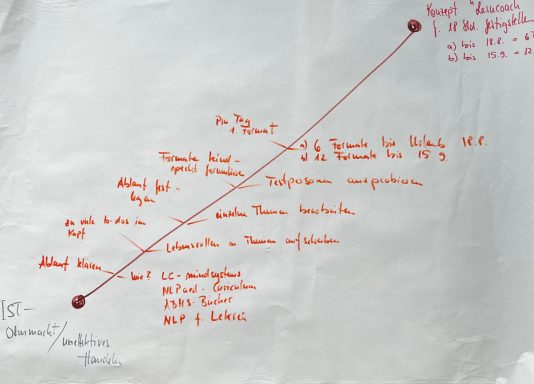 Konzept "Lerncoach
f. 18 Std. fertigstelle
a) bis 18.8. = 6
b) bis 15.9. = 12
Pro Tag
1 Format
a) 6 Formate bis Urlaub 18.8.
b) 12 Formate bis 15.9.
Formate kind-
Ablauf fest-
legen
Testpersonen ausprobieren
einzelne Themen bearbeiten
zu viele to dos im
Kopf
Lebensrollen in Themen aufschreiben
Ablauf klären
wie? LC - mindsystems
NLPaed - Curiculum
ADHS-Bücher
NLP f. Lehrer
IST -
Ohnmacht / uneffektives
Handeln